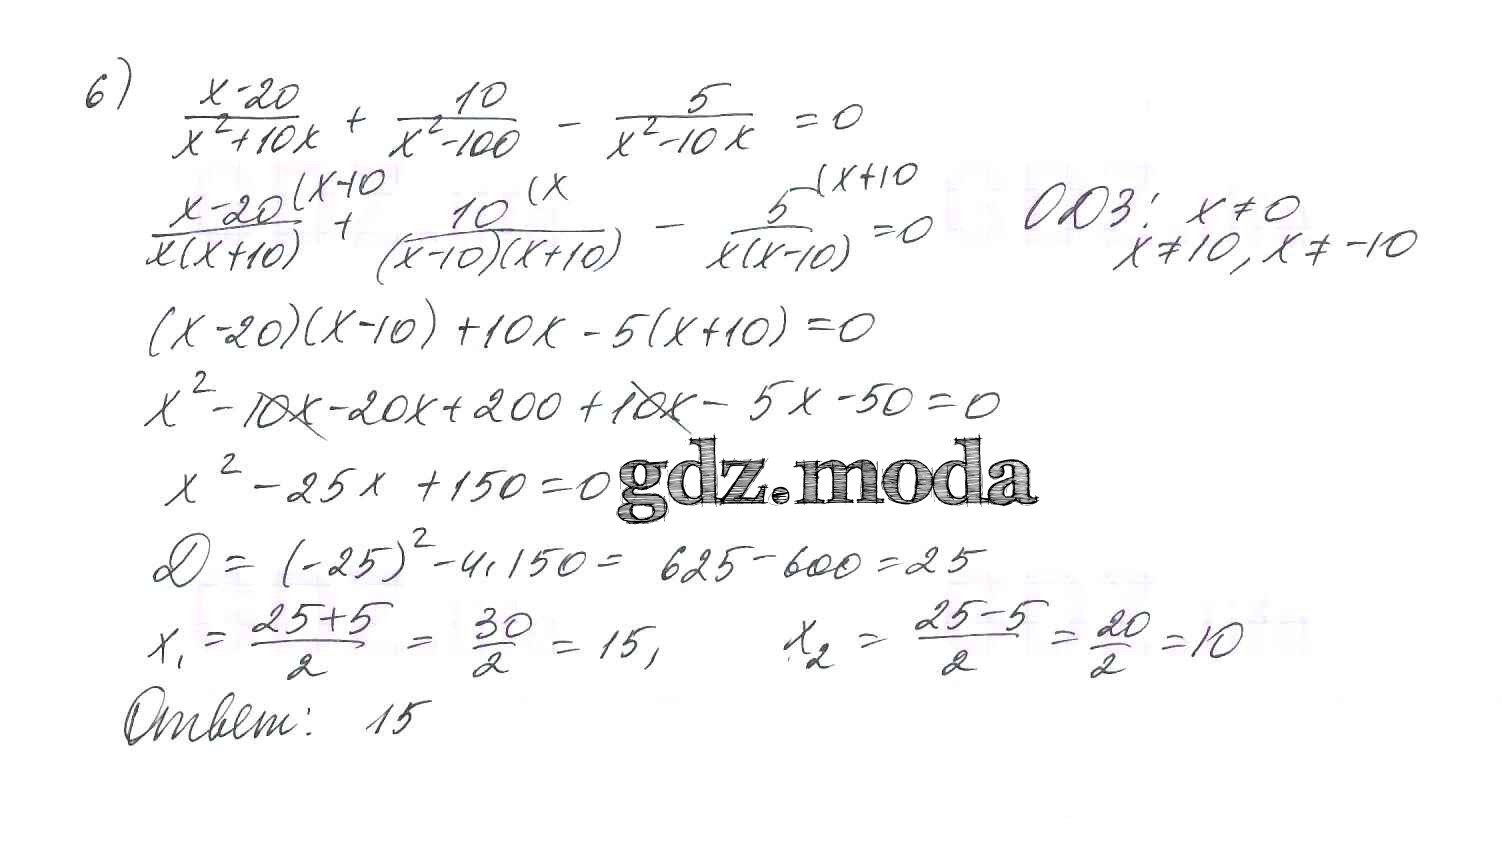 6) (x-20)/(x²+10x) + 10/(x²-100) - 5/(x²-10x) = 0
(x-20)/(x(x+10)) (x-10 + 10/((x-10)(x+10)) (x - 5/(x(x-10)) (x+10 = 0 ОДЗ: x≠0
x≠10, x≠-10
(x-20)(x-10)+10x-5(x+10)=0
x²-10x-20x+200+10x-5x-50=0
x²-25x+150=0
gdz.moda
D=(-25)²-4·150=625-600=25
x₁=(25+5)/2=30/2=15, x₂=(25-5)/2=20/2=10
Ответ: 15